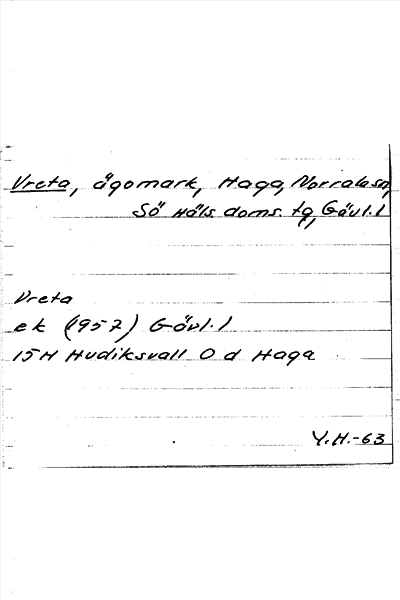 Vreta, ägomark, Haga, Norrala sn,
Sö Häls. doms. tg, Gävl. l
Vreta
ek (1957) Gävl. l
15H Hudiksvall 0 d Haga
Y.H.-63